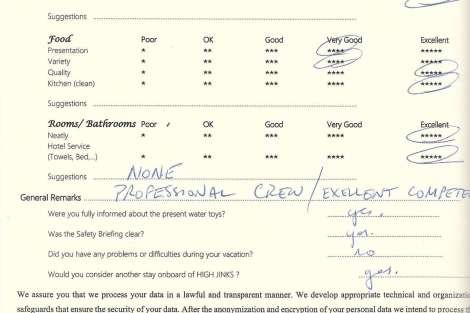 Suggestions
Food Poor OK Good Very Good Excellent
Presentation * ** *** **** *****
Variety * ** *** **** *****
Quality * ** *** **** *****
Kitchen (clean) * ** *** **** *****
Suggestions
Rooms/ Bathrooms Poor OK Good Very Good Excellent
Neatly * ** *** **** *****
Hotel Service
(Towels, Bed,...) * ** *** **** *****
Suggestions NONE
General Remarks PROFESSIONAL CREW / EXELLENT COMPETE
Were you fully informed about the present water toys? yes.
Was the Safety Briefing clear? yes.
Did you have any problems or difficulties during your vacation? no
Would you consider another stay onboard of HIGH JINKS ? yes.
We assure you that we process your data in a lawful and transparent manner. We develop appropriate technical and organizatio
safeguards that ensure the security of your data. After the anonymization and encryption of your personal data we intend to process th